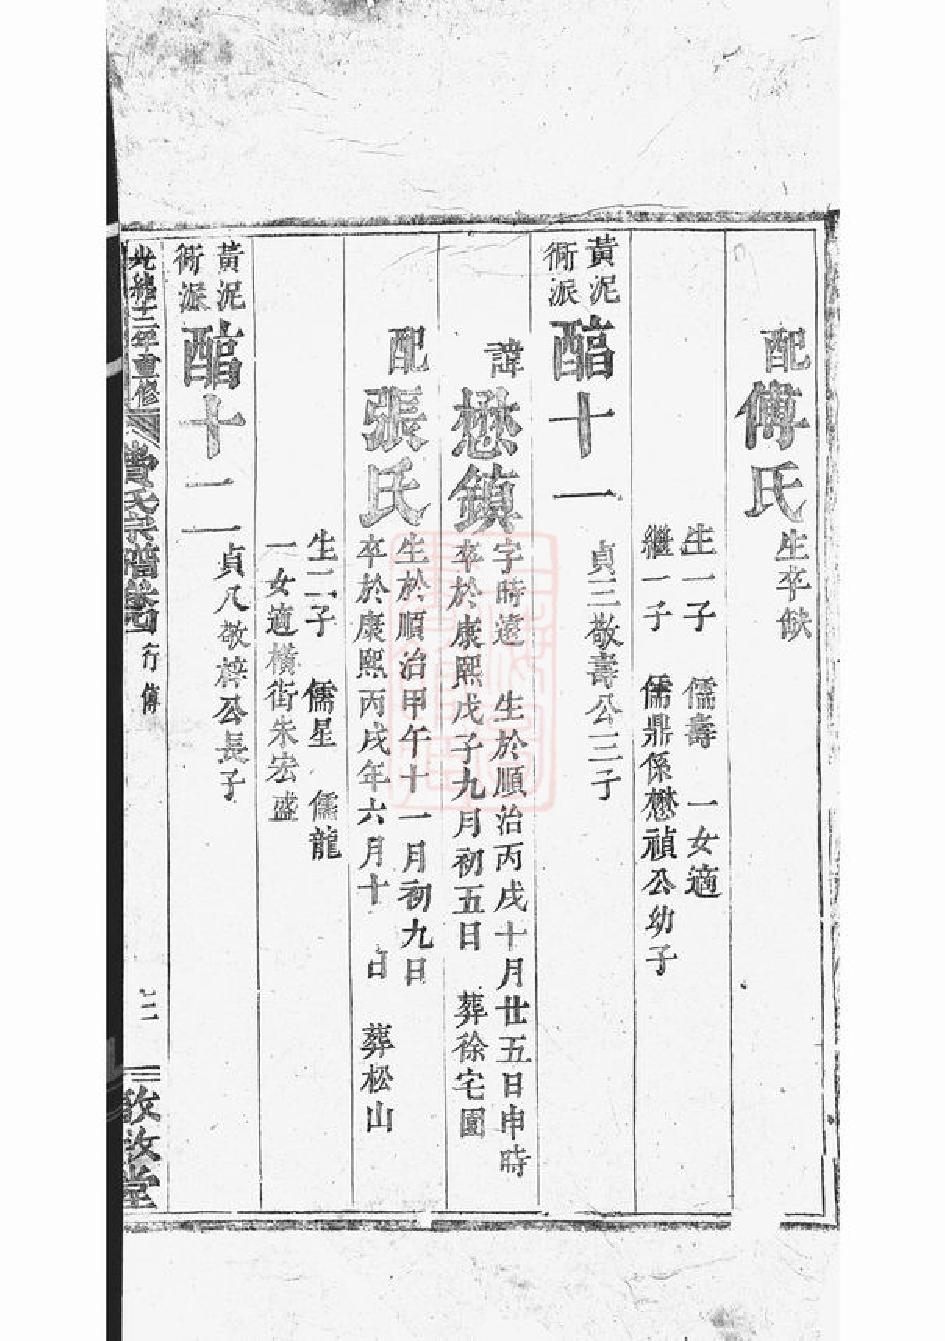 配傅氏生卒缺
生一子　儒壽　一女適
繼一子　儒鼎係懋禎公幼子
黃泥
衕派
醕十一
貞三敬壽公三子
諱懋鎮
字時遠　生於順治丙戌十月廿五日申時
卒於康熙戊子九月初五日　葬徐宅園
配張氏
生於順治甲午十一月初九日
卒於康熙丙戌年六月十　日　葬松山
生二子　儒星　儒龍
一女適橫街朱宏盛
黃泥
衕派
醕十二
貞八敬梓公長子
光緒十二年重修
費氏宗譜卷
行傳
敦敘堂